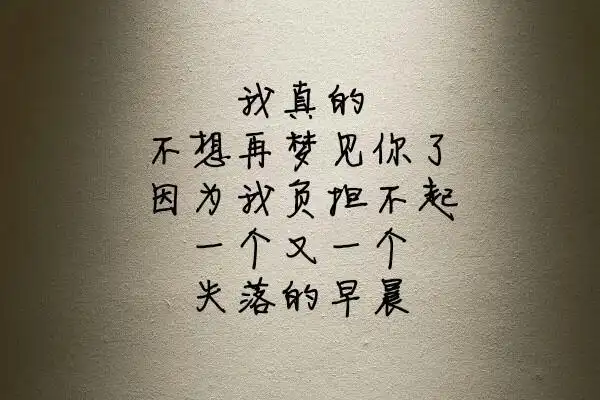 我真的
不想再梦见你了
因为我负担不起
一个又一个
失落的早晨